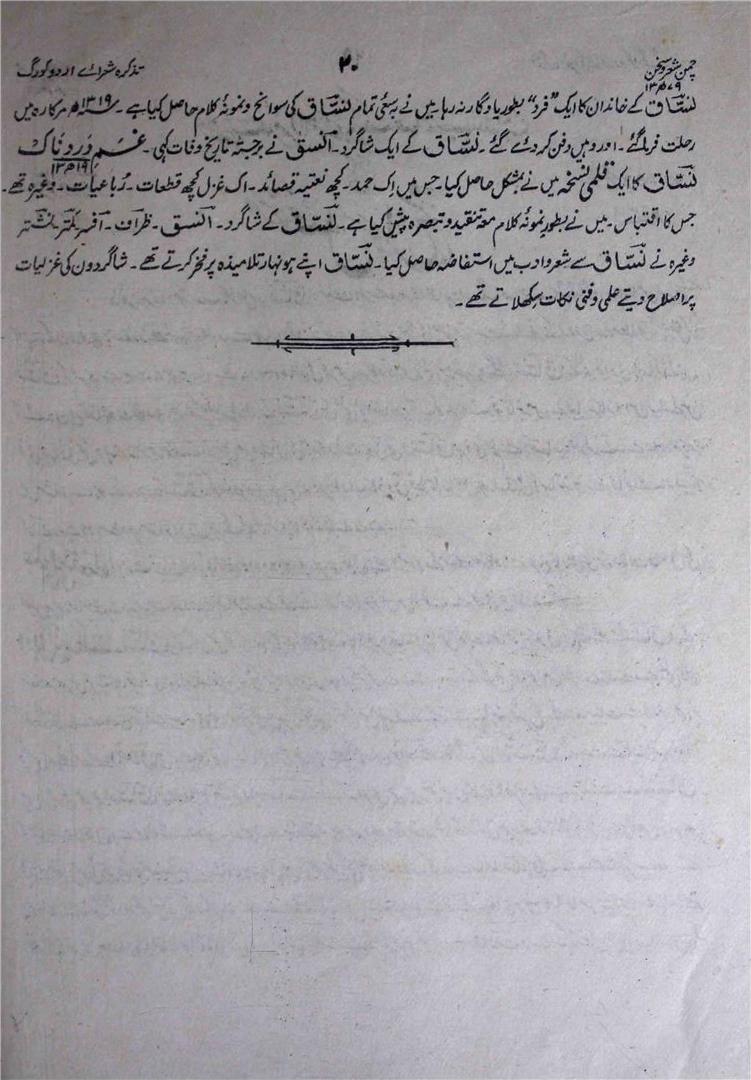 چمن شعر و سخن ۲۰ تذکرہ شعرائے اردو کورگ
۱۳۷۹ھ
نسّاق کے خاندان کا ایک "فرد" بطور یادگار نہ رہا۔ میں نے بسعیٔ تمام نسّاق کی سوانح و نمونۂ کلام حاصل کیا ہے۔ ۱۳۱۹ھ مرکارہ میں
رحلت فرما گئے۔ اور وہیں دفن کر دئے گئے۔ نسّاق کے ایک شاگرد۔ انسق نے برجستہ تاریخ وفات کہی۔ غم دردناک
۱۳۱۹ھ
نسّاق کا ایک قلمی نسخہ میں نے بمشکل حاصل کیا۔ جس میں اک حمد۔ کچھ نعتیہ قصائد۔ اک غزل کچھ قطعات۔ رباعیات۔ وغیرہ تھے۔
جس کا اقتباس۔ میں نے بطور نمونۂ کلام معہ تنقید و تبصرہ پیش کیا ہے۔ نسّاق کے شاگرد۔ انسق۔ ظراف۔ افسر نشتر
وغیرہ نے نسّاق سے شعر و ادب میں استفاضہ حاصل کیا۔ نسّاق اپنے ہونہار تلامیذہ پر فخر کرتے تھے۔ شاگردوں کی غزلیات
پر اصلاح دیتے علمی و فنی نکات سکھلاتے تھے۔